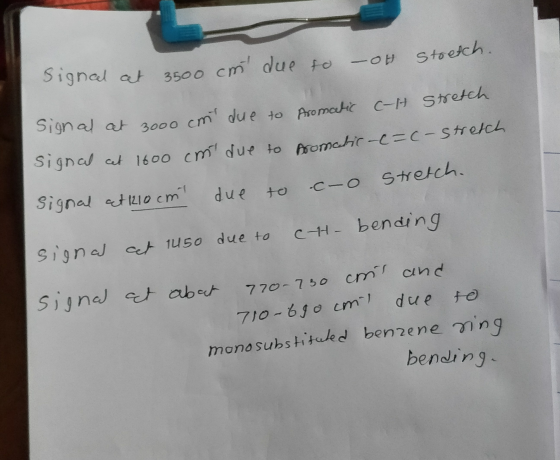 Signal at 3500 cm⁻¹ due to -OH stretch.
Signal at 3000 cm⁻¹ due to Aromatic C-H stretch
Signal at 1600 cm⁻¹ due to Aromatic -C=C- stretch
Signal at 1210 cm⁻¹ due to -C-O stretch.
Signal at 1450 due to C-H- bending
Signal at abat 770-730 cm⁻¹ and
710-690 cm⁻¹ due to
monosubstituted benzene ring
bending.